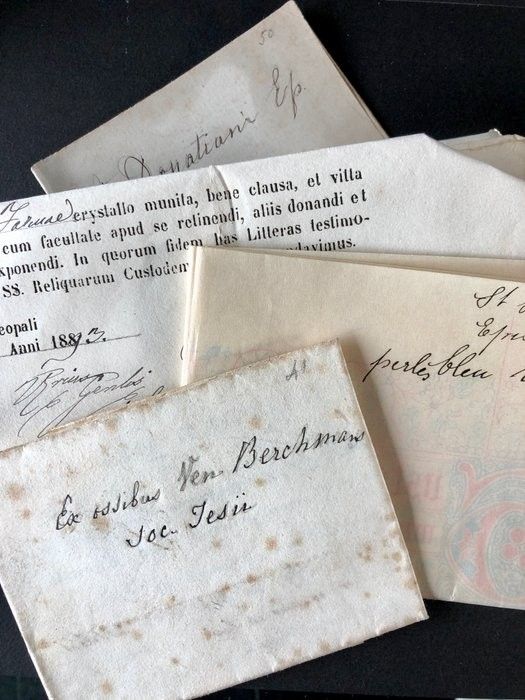 50
Donatiani Ep.
crystallo munita, bene clausa, et vitta
cum facultate apud se retinendi, aliis donandi et
xponendi. In quorum fidem has Litteras testimo-
SS. Reliquarum Custodem davimus.
eopali
Anni 1893.
St
perles bleu
A1
Ex ossibus Ven. Berchmans
Soc. Jesu